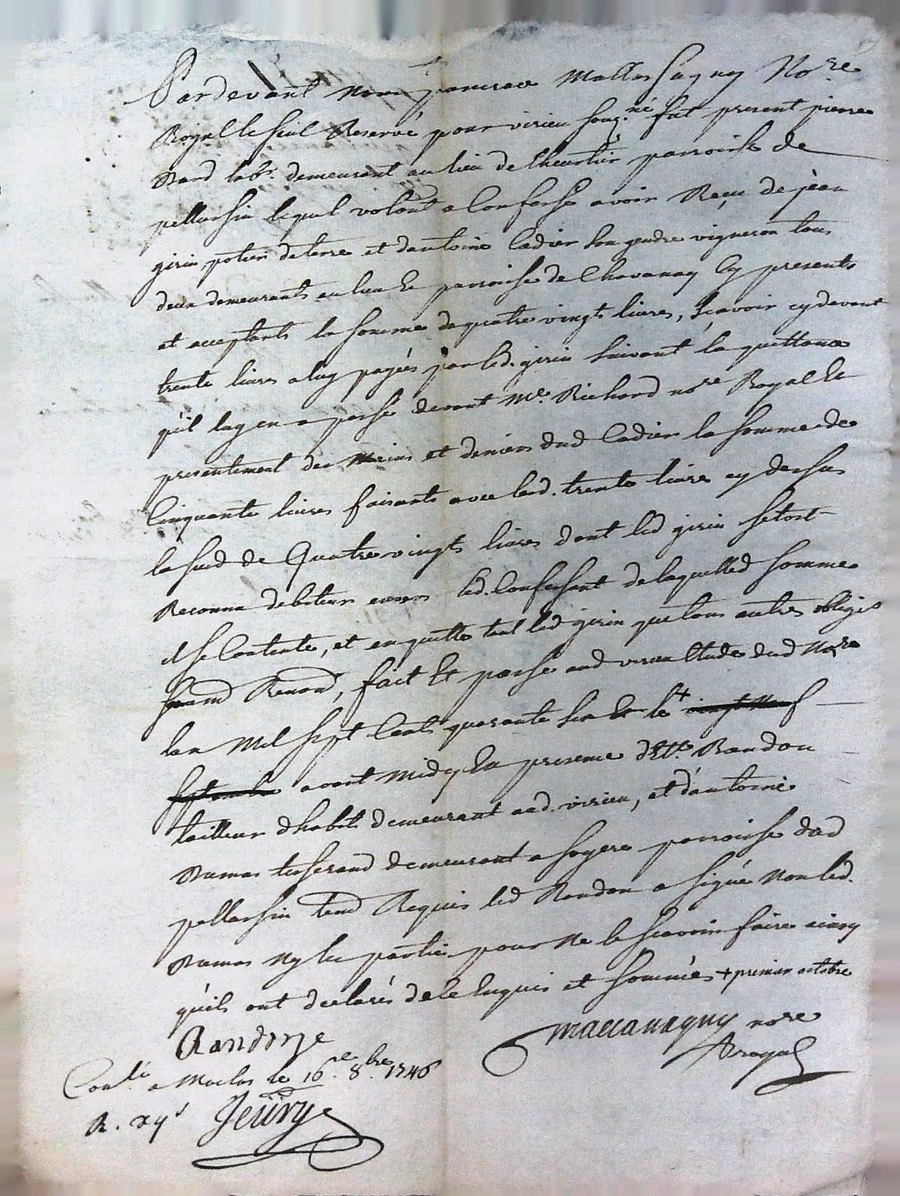 Pardevant Nous pancrace Mallassagny No.re
Royal le seul Reservé pour virieu sousg.né fut present pierre
Bard lab.r demeurant au lieu de parroisse de
pellussin lequel volont. a Confessé avoir Reçu de jean
girin potier de terre et d'antoine Cadier son gendre vigneron tous
deux demeurants au lieu et parroisse de Chavanay Cy presents
et acceptants la somme de quatre vingts livres, scavoir cy devant
trente livres a luy payés par led. girin suivant la quittance
qu'il luy en a passé devant M.e Richard no.re Royal et
presentement des mains et deniers dud Cadier la somme de
Cinquante livres faisants avec lesd. trente livres cy dessus
la susd de Quatre vingts livres dont led girin s'etoit
Reconnu debiteur envers led. Confessant de laquelled somme
il se Contente, et en quitte tant led girin que tous autres obligés
, fait et passé aud virieu Etude dud No.re
lan Mil sept Cents quarante six et le + vingt neuf
septembre avant midy En presence d'Et.e Randon
tailleur d'habits demeurant aud. virieu, et d'antoine
Dumas tisserand demeurant a parroisse dud
pellussin Requis led Randon a signé Non led.
Dumas Ny les parties pour Ne le scavoir faire ainsy
qu'ils ont declarés de ce Enquis et sommés + premier octobre
Randon
no.re
royal
Con.lé a Maclas le 16.e 8.bre 1746
R.